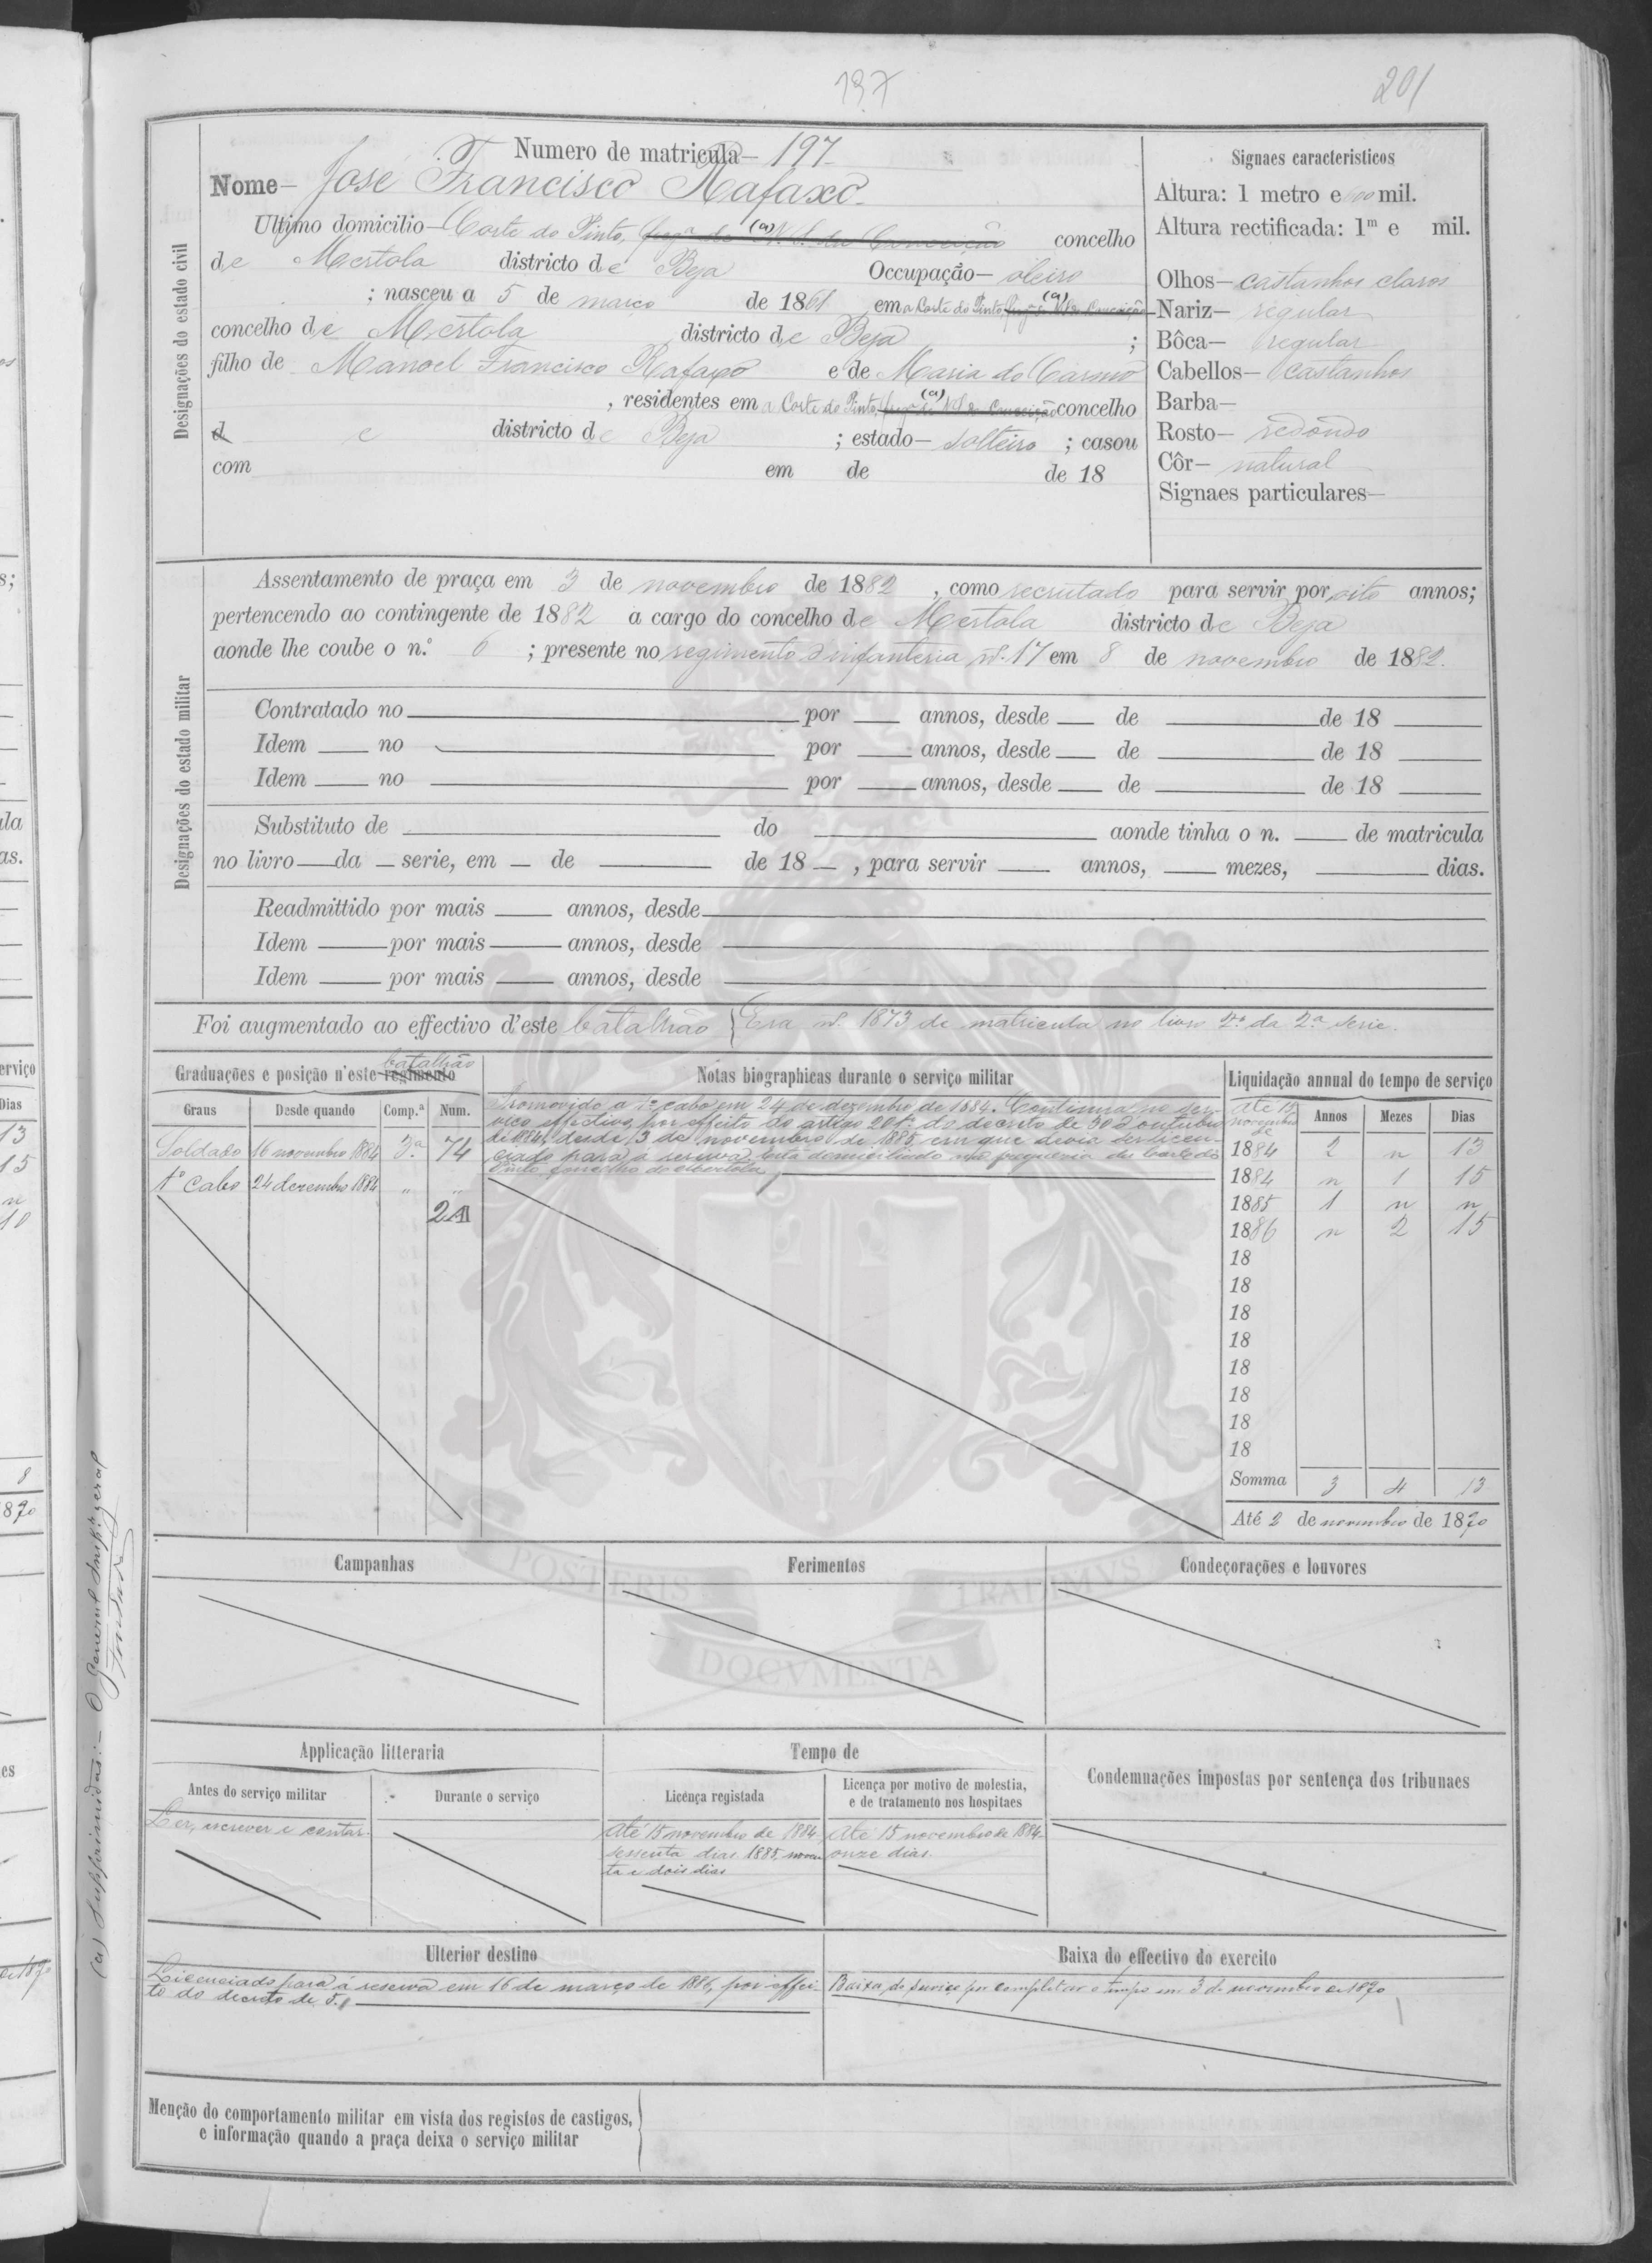 197 201
Numero de matricula— 197
Nome— José Francisco Rafaxo
Ultimo domicilio— Corte do Pinto, (a) concelho
de Mertola districto de Beja Occupação— oleiro
; nasceu a 5 de março de 1861 em a Corte do Pinto, (a)
concelho de Mertola districto de Beja ;
filho de Manoel Francisco Rafaxo e de Maria do Carmo
, residentes em a Corte do Pinto, (a) concelho
d e districto de Beja ; estado— solteiro ; casou
com em de de 18
Designações do estado civil
Signaes caracteristicos
Altura: 1 metro e 600 mil.
Altura rectificada: 1m e mil.
Olhos— castanhos claros
Nariz— regular
Bôca— regular
Cabellos— castanhos
Barba—
Rosto— redondo
Côr— natural
Signaes particulares—
Assentamento de praça em 3 de novembro de 1882 , como recrutado para servir por oito annos;
pertencendo ao contingente de 1882 a cargo do concelho de Mertola districto de Beja
aonde lhe coube o n.º 6 ; presente no regimento d'infanteria nº. 17 em 8 de novembro de 1882.
Designações do estado militar
Contratado no por annos, desde de de 18
Idem no por annos, desde de de 18
Idem no por annos, desde de de 18
Substituto de do aonde tinha o n. de matricula
no livro da serie, em de de 18 , para servir annos, mezes, dias.
Readmittido por mais annos, desde
Idem por mais annos, desde
Idem por mais annos, desde
Foi augmentado ao effectivo d'este batalhão { Era nº. 1873 de matricula no livro 2º da 2ª serie.
batalhão
Graduações e posição n'este regimento
Graus Desde quando Comp.ª Num.
Soldado 16 novembro 1884 3.ª 74
1º Cabo 24 dezembro 1884 " "
21
Notas biographicas durante o serviço militar
Promovido a 1º cabo em 24 de dezembro de 1884. Continua no ser-
viço effectivo, por effeito do artigo do decreto de 30 d'outubro
de 1884, desde 3 de novembro de 1885 em que devia ser licen-
ciado para a reserva. Está domiciliado na freguezia da Corte do
Pinto, concelho de Mertola
Liquidação annual do tempo de serviço
Até 15 novembro de Annos Mezes Dias
1884 2 n 13
1884 n 1 15
1885 1 n n
1886 n 2 15
18
18
18
18
18
18
18
18
Somma 3 4 13
Até 2 de novembro de 1890
Campanhas Ferimentos Condecorações e louvores
POSTERIS TRADIMVS DOCVMENTA
Applicação litteraria
Antes do serviço militar Durante o serviço
Ler, escrever e contar.
Tempo de
Licença registada
Até 15 novembro de 1884
sessenta dias. 1885, noven-
ta e dois dias
Licença por motivo de molestia,
e de tratamento nos hospitaes
Até 15 novembro de 1884
onze dias.
Condemnações impostas por sentença dos tribunaes
Ulterior destino
Licenciado para a reserva em 16 de março de 1886, por effei-
to do decreto de
Baixa do effectivo do exercito
Baixa do serviço por completar o tempo em 3 de novembro de 1890
Menção do comportamento militar em vista dos registos de castigos,
e informação quando a praça deixa o serviço militar
(a) Supprimidas.— O General Insp.or geral